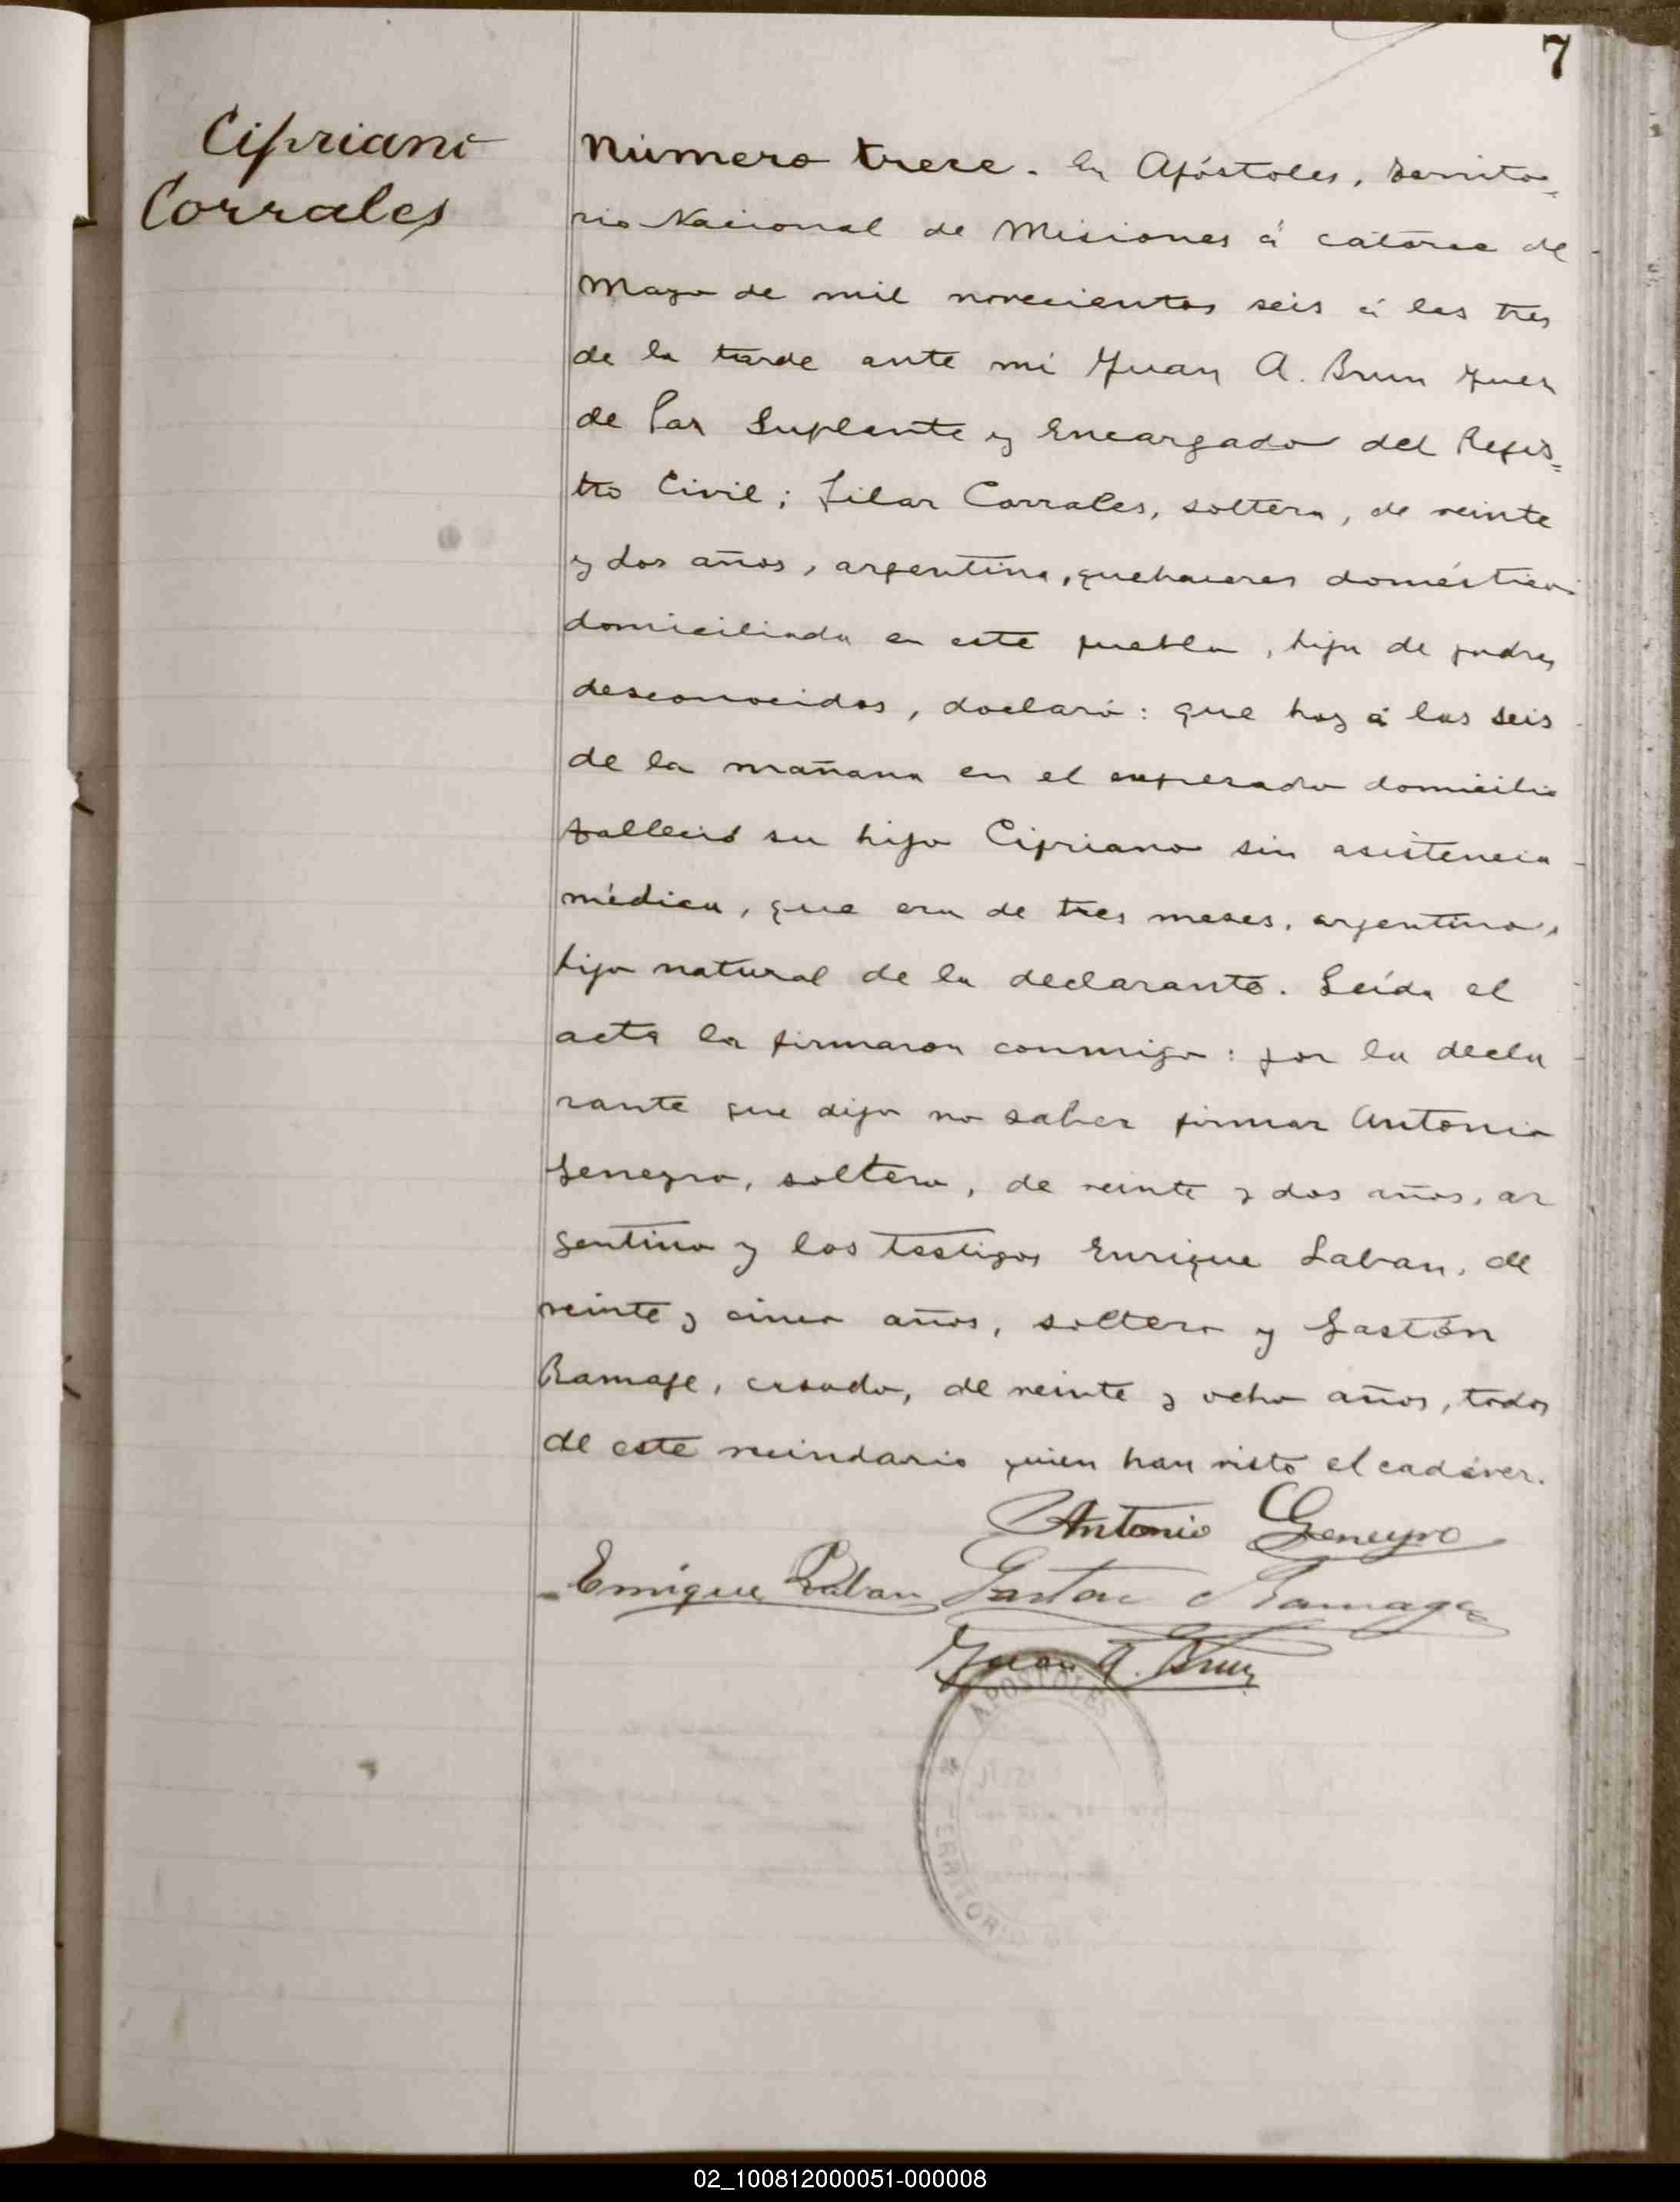 7
Cipriano
Corrales
Número trece. En Apóstoles, Territo=
rio Nacional de Misiones á catorce de
Mayo de mil novecientos seis á las tres
de la tarde ante mí Juan A. Brun Juez
de Paz Suplente y Encargado del Regis=
tro Civil; Pilar Corrales, soltera, de veinte
y dos años, argentina, quehaceres domésticos
domiciliada en este pueblo, hija de padres
desconocidos, declaró: que hoy á las seis
de la mañana en el expresado domicilio
falleció su hijo Cipriano sin asistencia
médica, que era de tres meses, argentino,
hijo natural de la declarante. Leída el
acta la firmaron conmigo: por la decla
rante que dijo no saber firmar Antonio
Geneyro, soltero, de veinte y dos años, ar
gentino y los testigos Enrique Laban, de
veinte y cinco años, soltero y Gastón
Ramage, casado, de veinte y ocho años, todos
de este vecindario quien han visto el cadáver.
Antonio Geneyro
Enrique Laban Gaston Ramage
Juan A. Brun
APOSTOLES
TERRITORIO
02_100812000051-000008